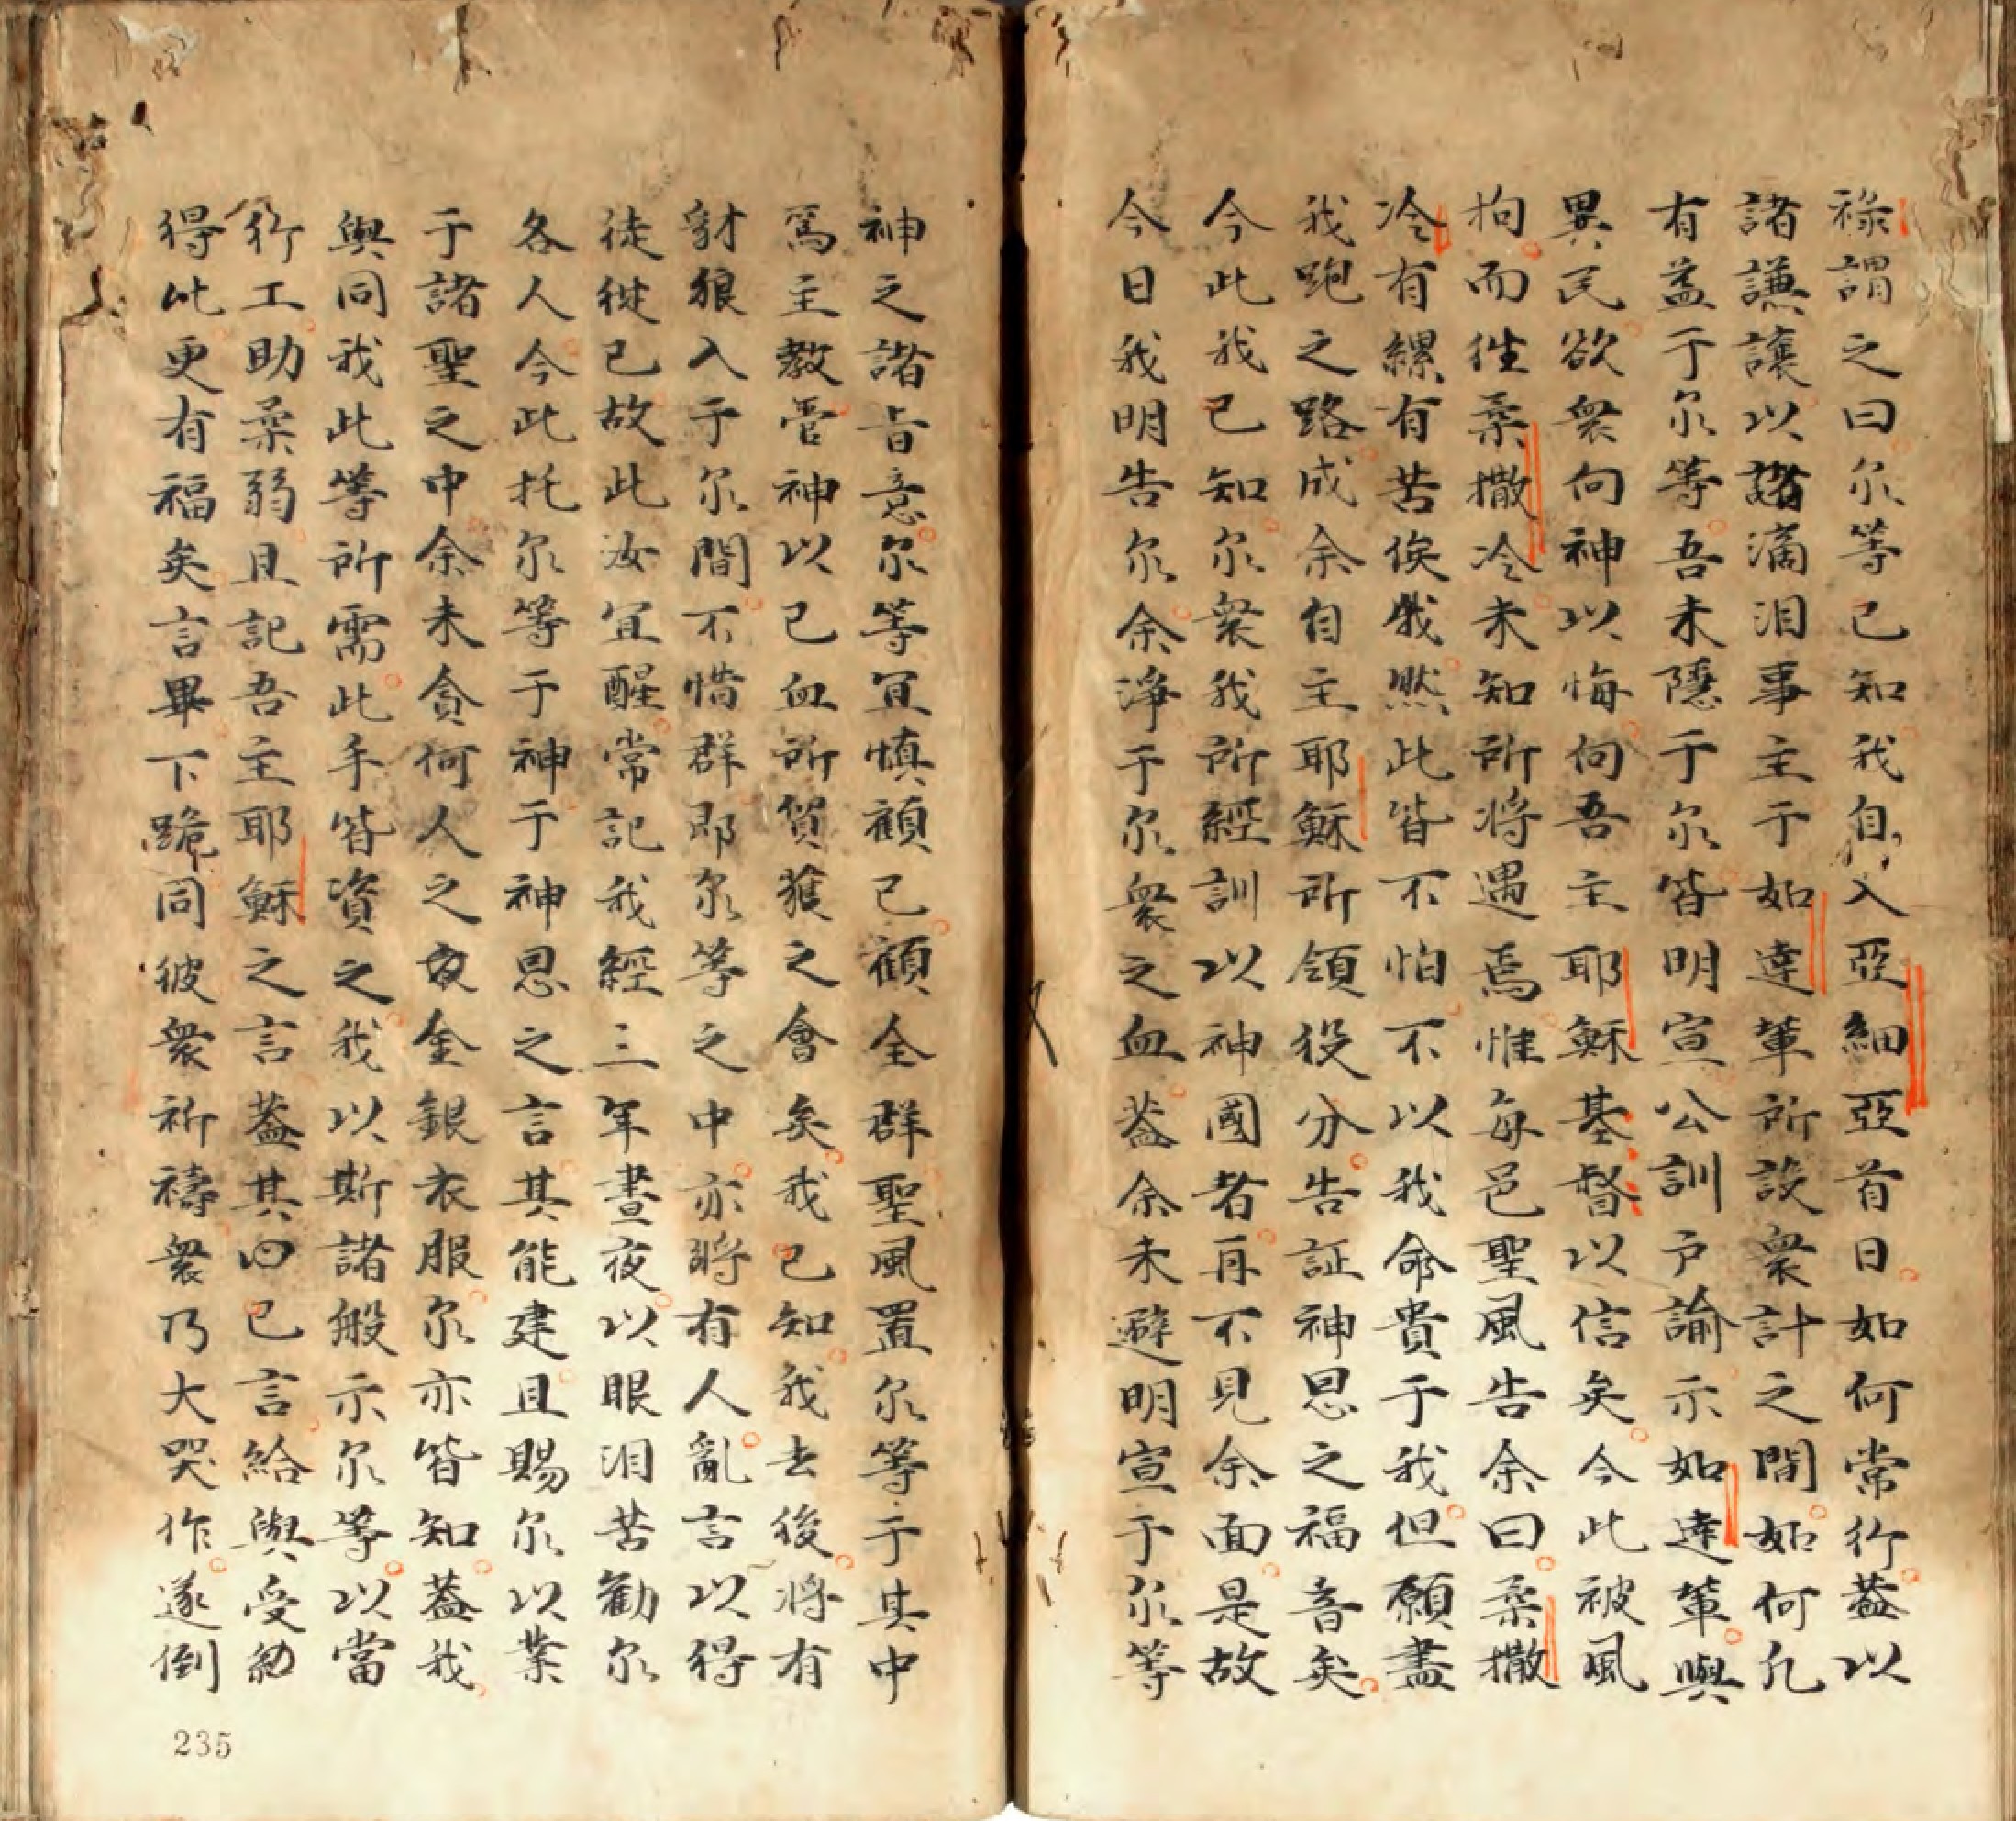 祿謂之曰尔等已知我自入亞細亞首日如何常行蓋以
諸謙讓以諸滴泪事主于如達輩所設衆計之間如何凢
有益于尔等吾未隱于尔皆明宣公訓户諭示如達輩與
異民欲衆向神以悔向吾主耶穌基督以信矣今此被風
拘而徃柔撒冷未知所將遇焉惟每邑聖風告余曰柔撒
冷有縲有苦俟我然此皆不怕不以我命貴于我但願盡
我跑之路成余自主耶穌所領役分告証神恩之福音矣
今此我已知尔衆我所經訓以神國者再不見余面是故
今日我明告尔余淨于尔衆之血蓋余未避明宣于尔等
神之諸旨意尔等宜慎顧己顧全群聖風置尔等于其中
為主教管神以己血所貿獲之會矣我已知我去後將有
豺狼入于尔間不惜群即尔等之中亦將有人亂言以得
徒従己故此汝宜醒常記我經三年晝夜以眼泪苦勸尔
各人今此托尔等于神于神恩之言其能建且賜尔以業
于諸聖之中余未貪何人之金銀衣服尔亦皆知蓋我
與同我此等所需此手皆資之我以斯諸般示尔等以當
行工助柔弱且記吾主耶穌之言蓋其曰已言給與受
得此更有福矣言畢下跪同彼衆祈禱衆乃大哭作遂倒
235